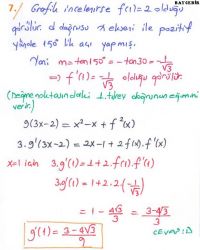 BAYGENİS
7.) Grafik incelenirse f(1)=2 olduğu
görülür. d doğrusu x ekseni ile pozitif
yönde 150° lik açı yapmış.
Yani m=tan150°=-tan30=-1/√3
⇒ f'(1)=-1/√3 olduğu görülür.
(Değme noktasındaki 1.türev doğrunun eğimini
verir.)
g(3x-2)=x²-x+f²(x)
3.g'(3x-2)=2x-1+2f(x).f'(x)
x=1 için 3.g'(1)=1+2.f(1).f'(1)
3.g'(1)=1+2.2.(-1/√3)
=1-4√3/3=3-4√3/3
g'(1)=3-4√3/9
CEVAP:B